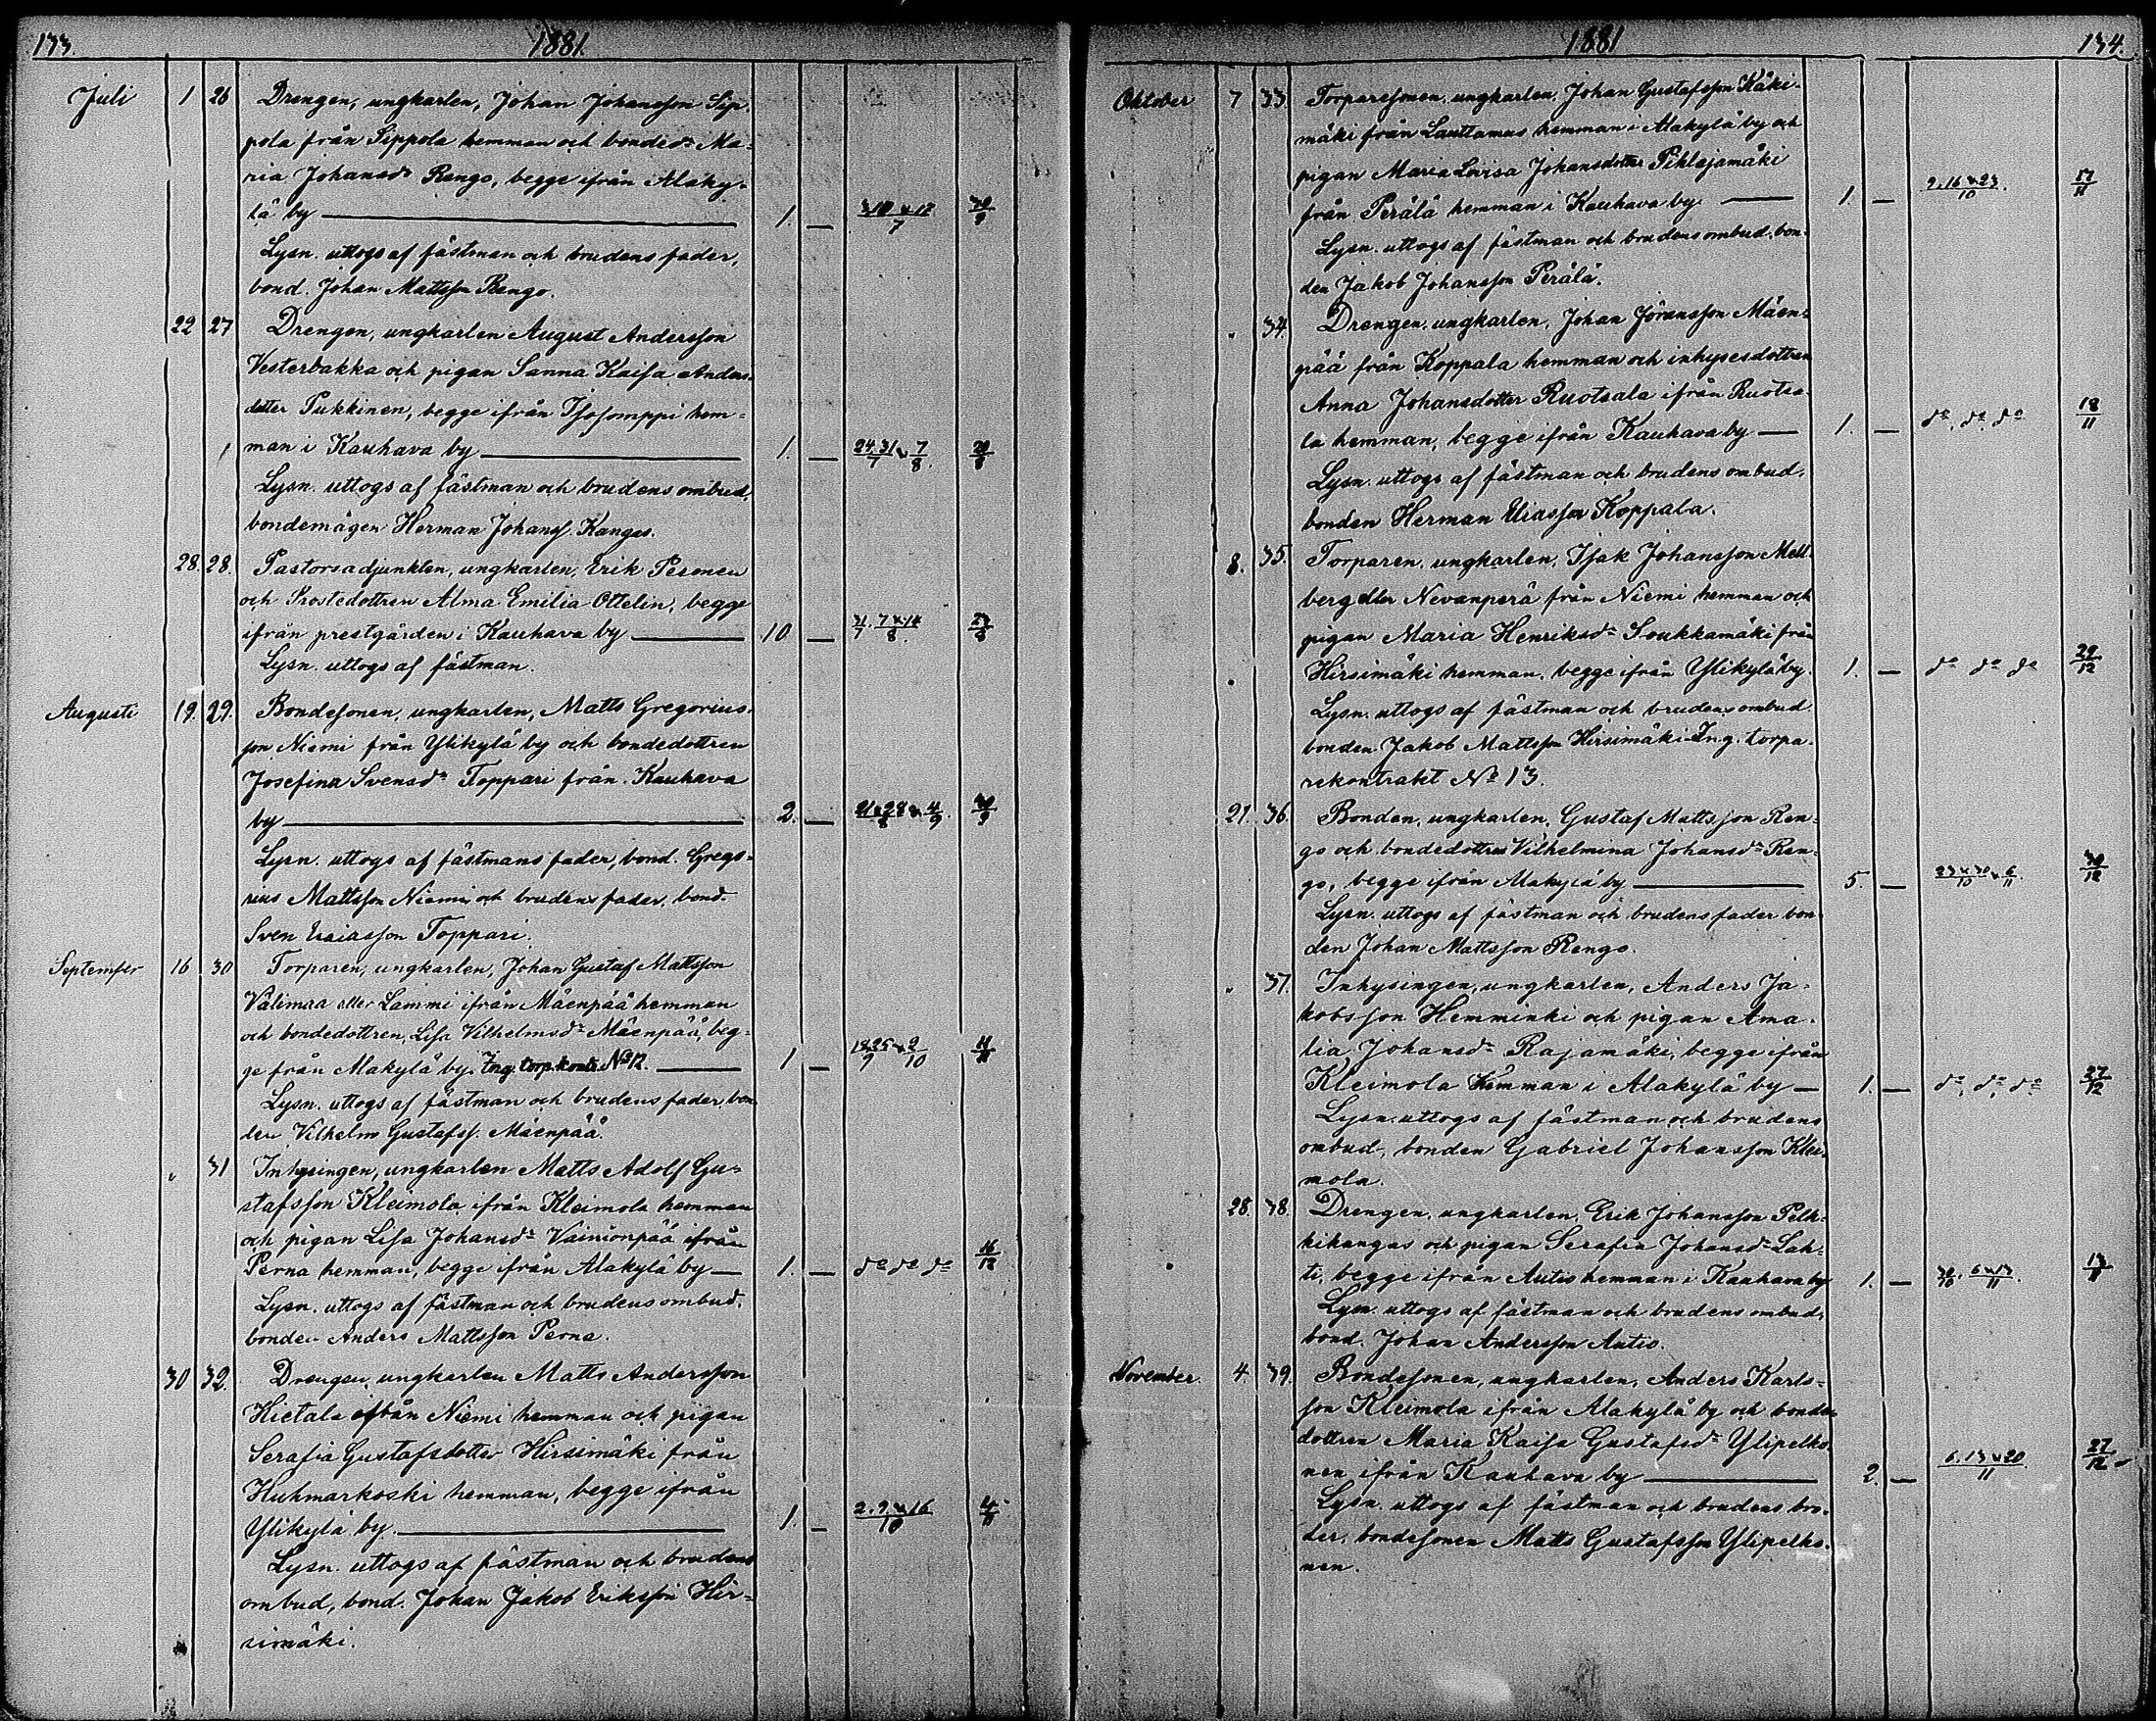 133. 1881.
Juli 1 26 Drengen, ungkarlen, Johan Johansson Sip-
pola från Sippola hemman och bonded:r Ma-
ria Johansd:r Rengo, begge ifrån Alaky-
lä by 1. —
Lysn. uttogs af fästman och brudens fader,
bond. Johan Mattsson Rengo.
22 27 Drengen, ungkarlen August Andersson
Vesterbakka och pigan Sanna Kaisa Anders-
dotter Pukkinen, begge ifrån Isosomppi hem-
man i Kauhava by 1. — 24.31/7 & 7/8. 28/8
Lysn. uttogs af fästman och brudens ombud,
bondemågen Herman Johanss. Kangas.
28. 28. Pastorsadjunkten, ungkarlen, Erik Pesonen
och Prostedottren Alma Emilia Ottelin, begge
ifrån prestgården i Kauhava by 10 — 31/7. 7 & 14/8. 23/8
Lysn. uttogs af fästman.
Augusti 19. 29. Bondesonen, ungkarlen, Matts Gregorius-
son Niemi från Ylikylä by och bondedottren
Josefina Svensd:r Toppari från Kauhava
by 2. — 21 & 28/8 & 4/9. 30/9
Lysn. uttogs af fästmans fader, bond. Grego-
rius Mattsson Niemi och brudens fader, bond.
Sven Esaiasson Toppari.
September 16 30 Torparen, ungkarlen, Johan Gustaf Mattsson
Välimaa eller Lammi ifrån Mäenpää hemman
och bondedottren, Lisa Vilhelmsd:r Mäenpää, beg-
ge från Alakylä by. Ing. torp.kontr. No 12. 1 — 18.25/9 & 2/10 11/11
Lysn. uttogs af fästman och brudens fader, bon-
den Vilhelm Gustafss. Mäenpää.
" 31 Inhysingen, ungkarlen Matts Adolf Gu-
stafsson Kleimola ifrån Kleimola hemman
och pigan Lisa Johansd:r Vainionpää ifrån
Perna hemman, begge ifrån Alakylä by 1. — d:o d:o d:o 16/12
Lysn. uttogs af fästman och brudens ombud,
bonden Anders Mattsson Perna.
30 32. Drengen, ungkarlen Matts Andersson
Hietala ifrån Niemi hemman och pigan
Serafia Gustafsdotter Hirsimäki från
Huhmarkoski hemman, begge ifrån
Ylikylä by. 1. — 2. 9 & 16/10 4/11
Lysn. uttogs af fästman och brudens
ombud, bond. Johan Jakob Eriksson Hir-
simäki.
1881 134.
Oktober 7 33. Torparesonen, ungkarlen, Johan Gustafsson Käki-
mäki från Lauttamus hemman i Alakylä by och
pigan Maria Lovisa Johansdotter Pihlajamäki
från Perälä hemman i Kauhava by 1. — 9. 16 & 23/10. 17/11
Lysn. uttogs af fästman och brudens ombud, bon-
den Jakob Johansson Perälä.
" 34. Drengen, ungkarlen, Johan Göransson Mäen-
pää från Koppala hemman och inhysesdottren
Anna Johansdotter Ruotsala ifrån Ruotsa-
la hemman, begge ifrån Kauhava by 1. — d:o, d:o, d:o 18/11
Lysn. uttogs af fästman och brudens ombud,
bonden Herman Eliasson Koppala.
8. 35. Torparen, ungkarlen, Isak Johansson Mell-
berg eller Nevanperä från Niemi hemman och
pigan Maria Henriksd:r Soukkamäki från
Hirsimäki hemman, begge ifrån Ylikylä by. 1. — d:o d:o d:o 29/12
Lysn. uttogs af fästman och brudens ombud
bonden Jakob Mattsson Hirsimäki. Ing. torpa-
rekontrakt No 13.
21. 36. Bonden, ungkarlen, Gustaf Mattsson Ren-
go och bondedottren Vilhelmina Johansd:r Ren-
go, begge ifrån Alakylä by 5. — 23 & 30/10 & 6/11. 30/12
Lysn. uttogs af fästman och brudens fader bon-
den Johan Mattsson Rengo.
" 37. Inhysingen, ungkarlen, Anders Ja-
kobsson Hemminki och pigan Ama-
lia Johansd:r Rajamäki, begge ifrån
Kleimola hemman i Alakylä by 1. — d:o, d:o, d:o 27/12
Lysn. uttogs af fästman och brudens
ombud, bonden Gabriel Johansson Klei-
mola.
28. 38. Drengen, ungkarlen, Erik Johansson Pelk-
kikangas och pigan Serafia Johansd:r Lah-
ti, begge ifrån Autio hemman i Kauhava by 1. — 30/10. 6 & 13/11. 13/11
Lysn. uttogs af fästman och brudens ombud,
bond. Johan Andersson Autio.
November. 4. 39. Bondesonen, ungkarlen, Anders Karls-
son Kleimola ifrån Alakylä by och bonde-
dottren Maria Kaisa Gustafsd:r Ylipelko-
nen ifrån Kauhava by 2. — 6. 13 & 20/11 27/12
Lysn. uttogs af fästman och brudens bro-
der, bondesonen Matts Gustafsson Ylipelko-
nen.